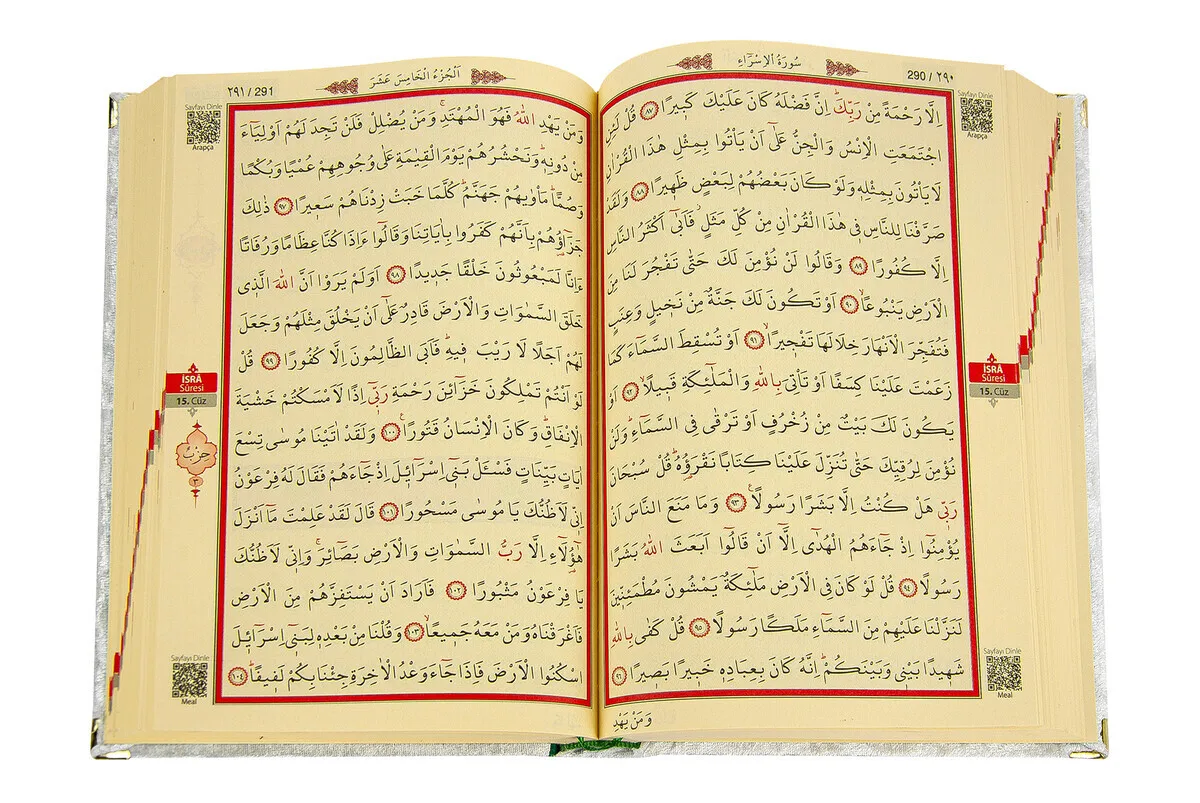 290 / ٢٩٠
سُورَةُ الْاِسْرَٓاءِ
Sayfayı Dinle
Arapça
اِلَّا رَحْمَةً مِنْ رَبِّكَۜ اِنَّ فَضْلَهُ كَانَ عَلَيْكَ كَب۪يرًا ﴿٨٧﴾ قُلْ لَئِنِ
اجْتَمَعَتِ الْاِنْسُ وَالْجِنُّ عَلٰٓى اَنْ يَأْتُوا بِمِثْلِ هٰذَا الْقُرْاٰنِ
لَا يَأْتُونَ بِمِثْلِه۪ وَلَوْ كَانَ بَعْضُهُمْ لِبَعْضٍ ظَه۪يرًا ﴿٨٨﴾ وَلَقَدْ
صَرَّفْنَا لِلنَّاسِ ف۪ي هٰذَا الْقُرْاٰنِ مِنْ كُلِّ مَثَلٍۘ فَاَبٰٓى اَكْثَرُ النَّاسِ
اِلَّا كُفُورًا ﴿٨٩﴾ وَقَالُوا لَنْ نُؤْمِنَ لَكَ حَتّٰى تَفْجُرَ لَنَا مِنَ
الْاَرْضِ يَنْبُوعًاۙ ﴿٩٠﴾ اَوْ تَكُونَ لَكَ جَنَّةٌ مِنْ نَخ۪يلٍ وَعِنَبٍ
فَتُفَجِّرَ الْاَنْهَارَ خِلَالَهَا تَفْج۪يرًاۙ ﴿٩١﴾ اَوْ تُسْقِطَ السَّمَٓاءَ كَمَا
زَعَمْتَ عَلَيْنَا كِسَفًا اَوْ تَأْتِيَ بِاللّٰهِ وَالْمَلٰٓئِكَةِ قَب۪يلًاۙ ﴿٩٢﴾ اَوْ
يَكُونَ لَكَ بَيْتٌ مِنْ زُخْرُفٍ اَوْ تَرْقٰى فِي السَّمَٓاءِۜ وَلَنْ
نُؤْمِنَ لِرُقِيِّكَ حَتّٰى تُنَزِّلَ عَلَيْنَا كِتَابًا نَقْرَؤُ۬هُۜ قُلْ سُبْحَانَ
رَبّ۪ي هَلْ كُنْتُ اِلَّا بَشَرًا رَسُولًا۟ ﴿٩٣﴾ وَمَا مَنَعَ النَّاسَ اَنْ
يُؤْمِنُٓوا اِذْ جَٓاءَهُمُ الْهُدٰٓى اِلَّٓا اَنْ قَالُٓوا اَبَعَثَ اللّٰهُ بَشَرًا
رَسُولًا ﴿٩٤﴾ قُلْ لَوْ كَانَ فِي الْاَرْضِ مَلٰٓئِكَةٌ يَمْشُونَ مُطْمَئِنّ۪ينَ
لَنَزَّلْنَا عَلَيْهِمْ مِنَ السَّمَٓاءِ مَلَكًا رَسُولًا ﴿٩٥﴾ قُلْ كَفٰى بِاللّٰهِ
شَه۪يدًا بَيْن۪ي وَبَيْنَكُمْۜ اِنَّهُ كَانَ بِعِبَادِه۪ خَب۪يرًا بَص۪يرًا ﴿٩٦﴾
وَمَنْ يَهْدِ
İSRÂ
Sûresi
15. Cüz
Sayfayı Dinle
Meal
اَلْجُزْءُ الْخَامِسَ عَشَرَ
٢٩١ / 291
Sayfayı Dinle
Arapça
وَمَنْ يَهْدِ اللّٰهُ فَهُوَ الْمُهْتَدِۚ وَمَنْ يُضْلِلْ فَلَنْ تَجِدَ لَهُمْ اَوْلِيَٓاءَ
مِنْ دُونِه۪ۜ وَنَحْشُرُهُمْ يَوْمَ الْقِيٰمَةِ عَلٰى وُجُوهِهِمْ عُمْيًا وَبُكْمًا
وَصُمًّاۜ مَأْوٰيهُمْ جَهَنَّمُۜ كُلَّمَا خَبَتْ زِدْنَاهُمْ سَع۪يرًا ﴿٩٧﴾ ذٰلِكَ
جَزَٓاؤُ۬هُمْ بِاَنَّهُمْ كَفَرُوا بِاٰيَاتِنَا وَقَالُٓوا ءَاِذَا كُنَّا عِظَامًا وَرُفَاتًا
ءَاِنَّا لَمَبْعُوثُونَ خَلْقًا جَد۪يدًا ﴿٩٨﴾ اَوَلَمْ يَرَوْا اَنَّ اللّٰهَ الَّذ۪ي
خَلَقَ السَّمٰوَاتِ وَالْاَرْضَ قَادِرٌ عَلٰٓى اَنْ يَخْلُقَ مِثْلَهُمْ وَجَعَلَ
لَهُمْ اَجَلًا لَا رَيْبَ ف۪يهِۜ فَاَبَى الظَّالِمُونَ اِلَّا كُفُورًا ﴿٩٩﴾ قُلْ
لَوْ اَنْتُمْ تَمْلِكُونَ خَزَٓائِنَ رَحْمَةِ رَبّ۪ٓي اِذًا لَاَمْسَكْتُمْ خَشْيَةَ
الْاِنْفَاقِۜ وَكَانَ الْاِنْسَانُ قَتُورًا۟ ﴿١٠٠﴾ وَلَقَدْ اٰتَيْنَا مُوسٰى تِسْعَ
اٰيَاتٍ بَيِّنَاتٍ فَسْـَٔلْ بَن۪ٓي اِسْرَٓائ۪لَ اِذْ جَٓاءَهُمْ فَقَالَ لَهُ فِرْعَوْنُ
اِنّ۪ي لَاَظُنُّكَ يَا مُوسٰى مَسْحُورًا ﴿١٠١﴾ قَالَ لَقَدْ عَلِمْتَ مَٓا اَنْزَلَ
هٰٓؤُ۬لَٓاءِ اِلَّا رَبُّ السَّمٰوَاتِ وَالْاَرْضِ بَصَٓائِرَۚ وَاِنّ۪ي لَاَظُنُّكَ
يَا فِرْعَوْنُ مَثْبُورًا ﴿١٠٢﴾ فَاَرَادَ اَنْ يَسْتَفِزَّهُمْ مِنَ الْاَرْضِ
فَاَغْرَقْنَاهُ وَمَنْ مَعَهُ جَم۪يعًاۙ ﴿١٠٣﴾ وَقُلْنَا مِنْ بَعْدِه۪ لِبَن۪ٓي اِسْرَٓائ۪لَ
اسْكُنُوا الْاَرْضَ فَاِذَا جَٓاءَ وَعْدُ الْاٰخِرَةِ جِئْنَا بِكُمْ لَف۪يفًاۜ ﴿١٠٤﴾
İSRÂ
Sûresi
15. Cüz
حِزْبٌ
٣
Sayfayı Dinle
Meal